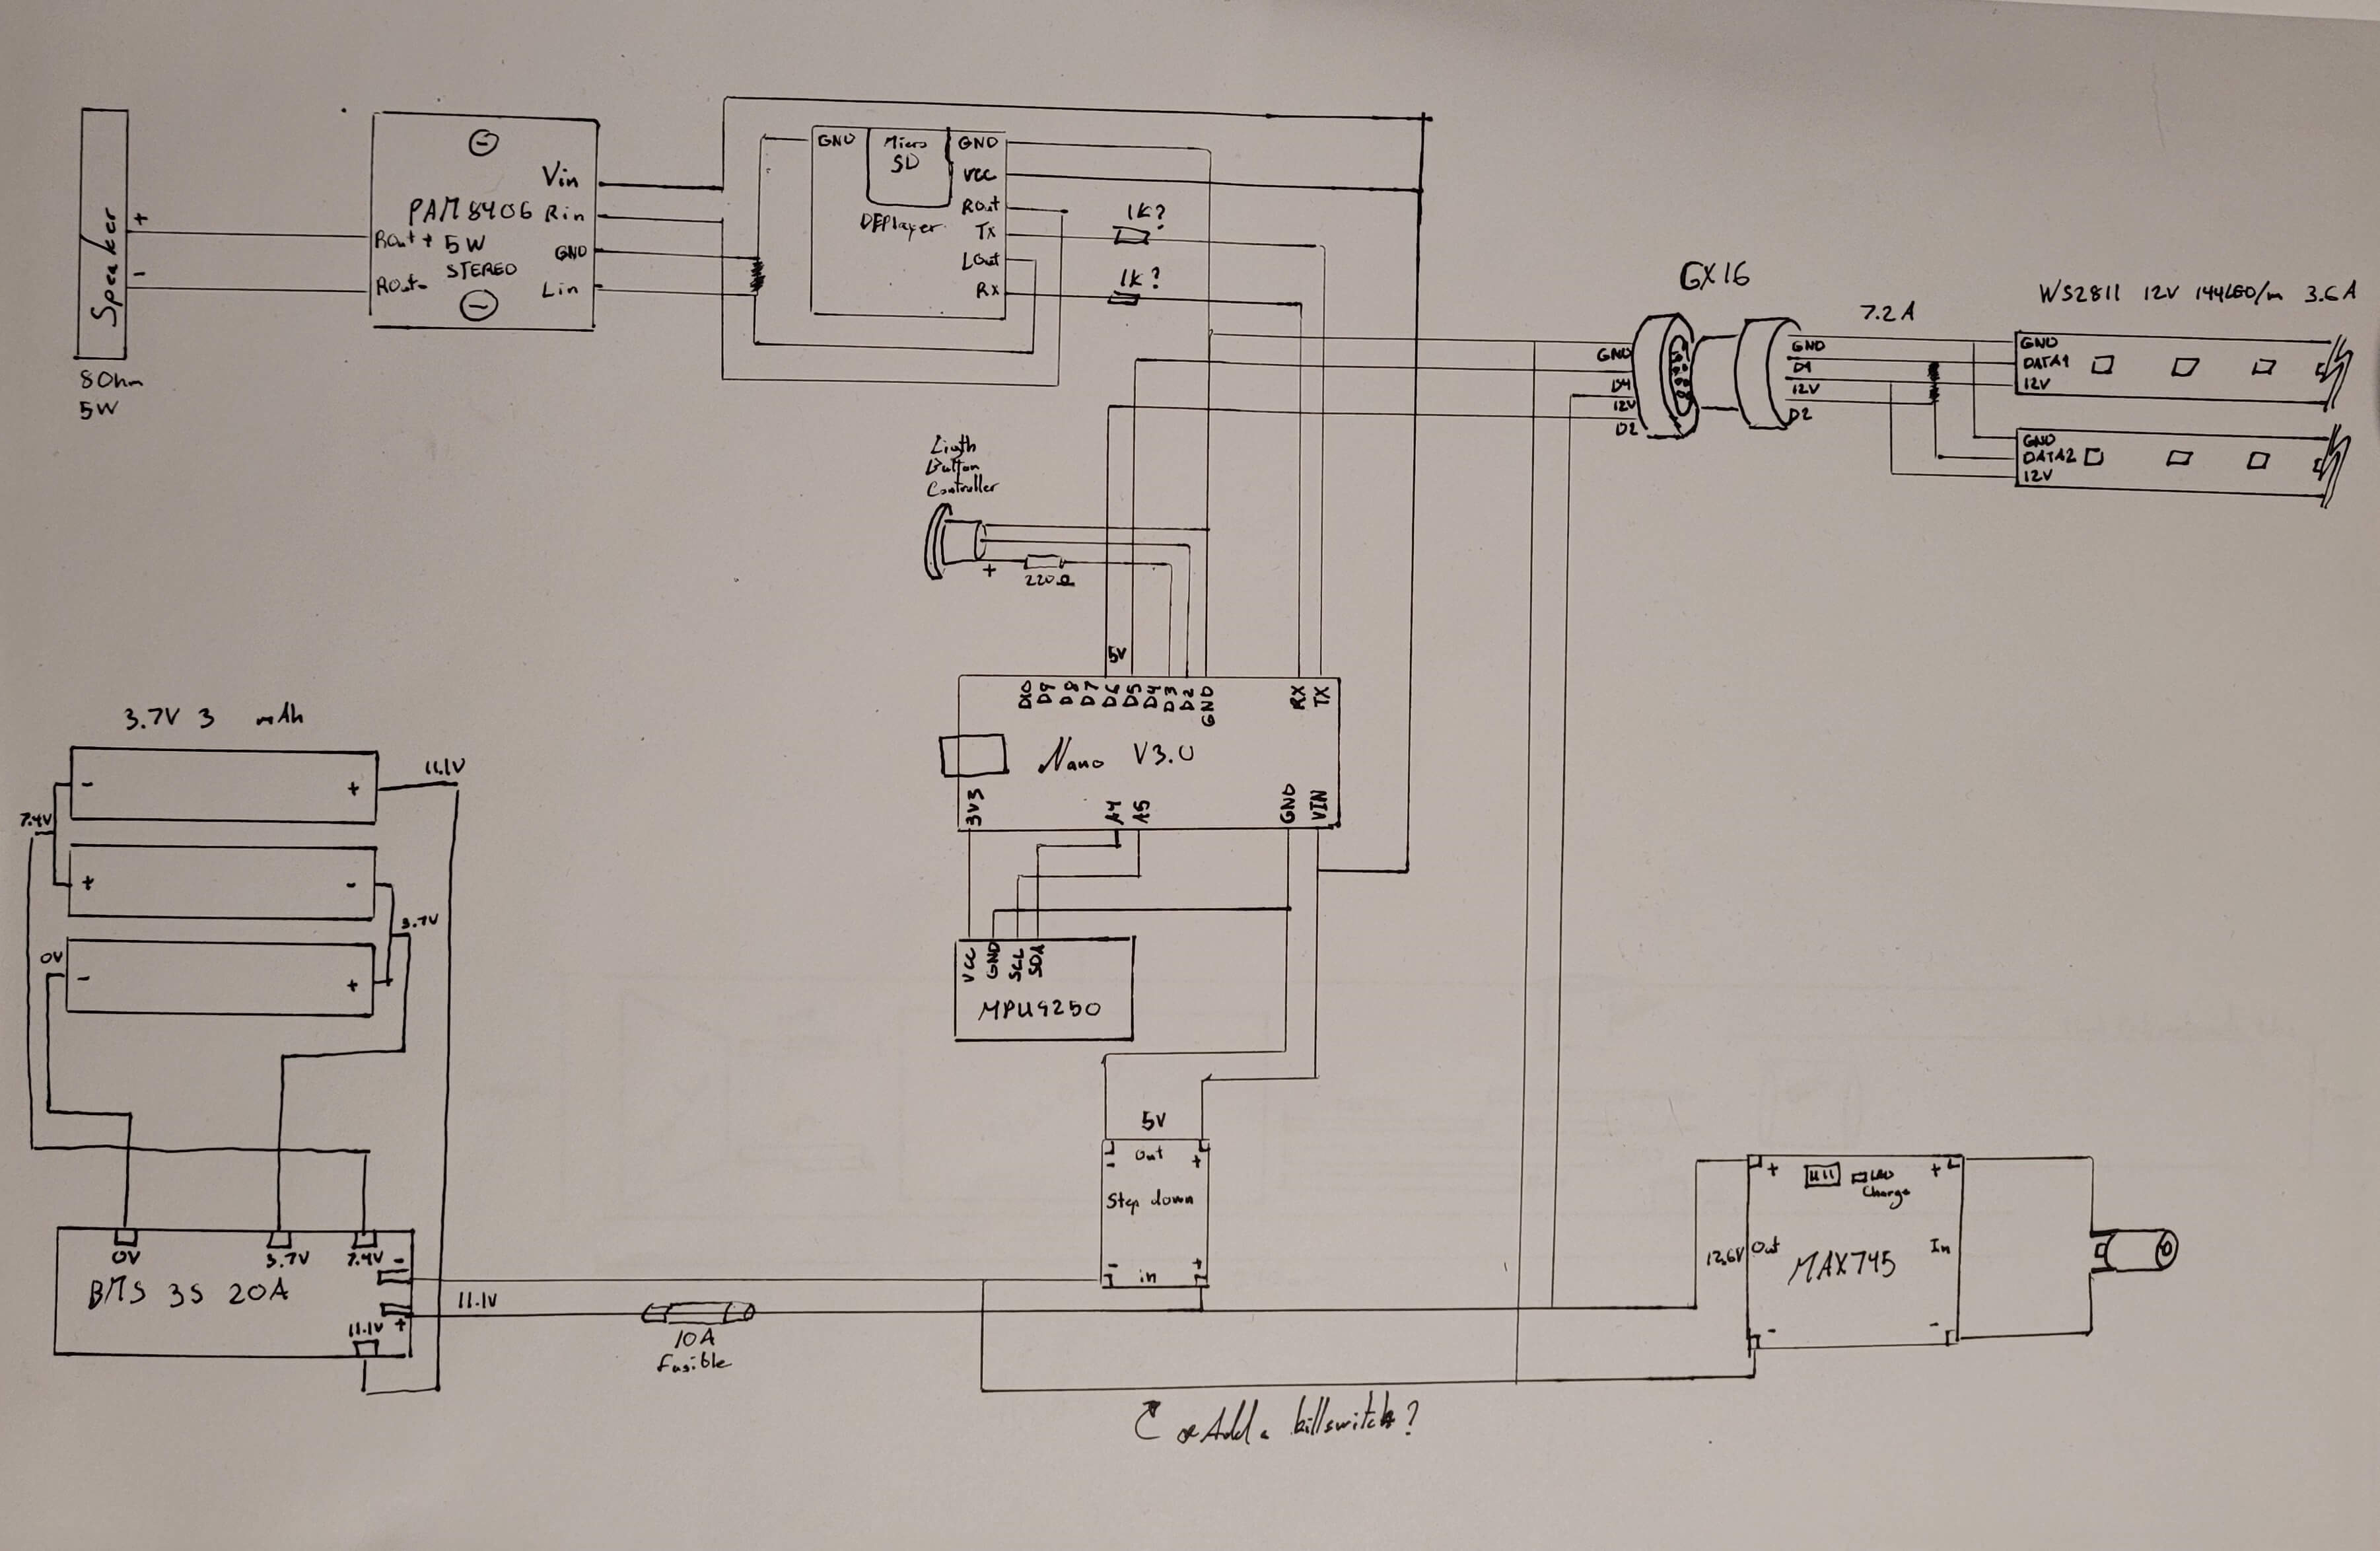 Speaker
+
-
8Ohm
5W
PAM8406
5W
STEREO
Vin
Rin
GND
Lin
ROut+
ROut-
GND
Micro
SD
DFPlayer
GND
VCC
ROut
Tx
LOut
Rx
1K?
1K?
GX16
GND
D1
12V
D2
GND
D1
12V
D2
7.2A
WS2811 12V 144LED/m 3.6A
GND
DATA1
12V
GND
DATA2
12V
Ligth
Button
Controller
+
220Ω
5V
D10
D9
D8
D7
D6
D5
D4
D3
D2
GND
RX
TX
Nano V3.0
3V3
A4
A5
GND
VIN
VCC
GND
SCL
SDA
MPU9250
3.7V 3 mAh
- +
11.1V
7.4V
+ -
3.7V
0V
- +
0V
3.7V
7.4V
-
BMS 3S 20A
11.1V
+
11.1V
10A
Fusible
5V
- Out +
Step down
- in +
+ LED +
Charge
12.6V
Out
In
MAX745
- -
or Add a killswitch?